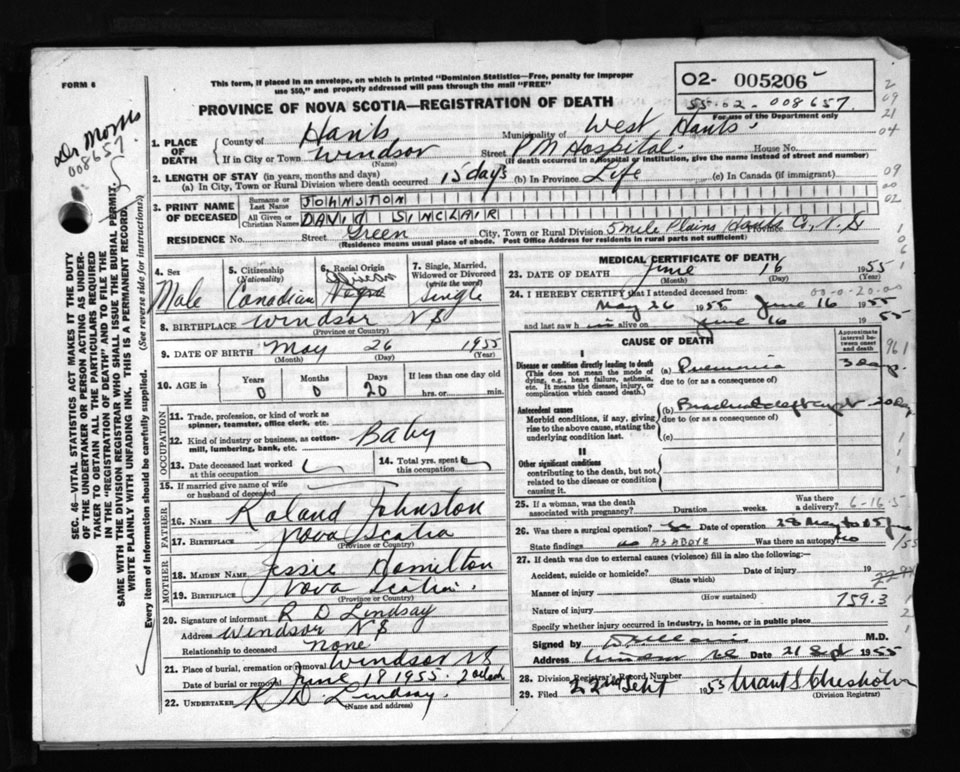 FORM 6
This form, if placed in an envelope, on which is printed "Dominion Statistics—Free, penalty for improper
use $50," and properly addressed will pass through the mail "FREE"
O2- 005206
55-02-008657
For use of the Department only
PROVINCE OF NOVA SCOTIA—REGISTRATION OF DEATH
Dr Morris
008657
SEC. 46—VITAL STATISTICS ACT MAKES IT THE DUTY
OF THE UNDERTAKER OR PERSON ACTING AS UNDER-
TAKER TO OBTAIN ALL THE PARTICULARS REQUIRED
IN THE "REGISTRATION OF DEATH" AND TO FILE THE
SAME WITH THE DIVISION REGISTRAR WHO SHALL ISSUE THE BURIAL PERMIT.
WRITE PLAINLY WITH UNFADING INK. THIS IS A PERMANENT RECORD.
Every item of information should be carefully supplied. (See reverse side for instructions)
1. PLACE OF DEATH
County of Hants Municipality of West Hants
If in City or Town Windsor Street P M Hospital House No.
(Name) (If death occurred in a hospital or institution, give the name instead of street and number)
2. LENGTH OF STAY (in years, months and days)
(a) In City, Town or Rural Division where death occurred 15 days (b) In Province Life (c) In Canada (if immigrant)
3. PRINT NAME OF DECEASED
Surname or Last Name JOHNSTON
All Given or Christian Names DAVID SINCLAIR
RESIDENCE No. Street Green City, Town or Rural Division 5 mile Plains Hants Co, N.S
(Residence means usual place of abode. Post Office Address for residents in rural parts not sufficient)
4. Sex
Male
5. Citizenship
(Nationality)
Canadian
6. Racial Origin
Negro
7. Single, Married, Widowed or Divorced
(write the word)
Single
8. BIRTHPLACE Windsor NS
(Province or Country)
9. DATE OF BIRTH May 26 1955
(Month) (Day) (Year)
10. AGE in Years Months Days If less than one day old
0 0 20 hrs. or min.
OCCUPATION
11. Trade, profession, or kind of work as
spinner, teamster, office clerk, etc.
12. Kind of industry or business, as cotton-
mill, lumbering, bank, etc.
Baby
13. Date deceased last worked
at this occupation
14. Total yrs. spent in
this occupation
15. If married give name of wife
or husband of deceased
FATHER
16. NAME Roland Johnston
17. BIRTHPLACE Nova Scotia
(Province or Country)
MOTHER
18. MAIDEN NAME Jessie Hamilton
19. BIRTHPLACE Nova Scotia
(Province or Country)
20. Signature of informant R D Lindsay
Address Windsor NS
Relationship to deceased none
21. Place of burial, cremation or removal Windsor NS
Date of burial or removal June 18 1955
22. UNDERTAKER R D Lindsay
(Name and address)
MEDICAL CERTIFICATE OF DEATH
23. DATE OF DEATH June 16 1955
(Month) (Day) (Year)
24. I HEREBY CERTIFY that I attended deceased from
May 26 1955 to June 16 1955
and last saw him alive on June 16 1955
CAUSE OF DEATH
Approximate interval between onset and death
I
Disease or condition directly leading to death
(This does not mean the mode of
dying, e.g., heart failure, asthenia,
etc. It means the disease, injury, or
complication which caused death.
(a) Pneumonia
due to (or as a consequence of)
Antecedent causes
Morbid conditions, if any, giving
rise to the above cause, stating the
underlying condition last.
(b) 20 day
due to (or as a consequence of)
(c)
II
Other significant conditions
contributing to the death, but not
related to the disease or condition
causing it.
25. If a woman, was the death
associated with pregnancy? Duration weeks. Was there
a delivery?
6-16-5
26. Was there a surgical operation? Date of operation
State findings AS ABOVE Was there an autopsy? no
27. If death was due to external causes (violence) fill in also the following:—
Accident, suicide or homicide? Date of injury 19
(State which)
Manner of injury
(How sustained)
759.3
Nature of injury
Specify whether injury occurred in industry, in home, or in public place
Signed by M.D.
Address Date 21 Sept 1955
28. Division Registrar's Record Number
29. Filed 22nd Sept 1955 Grant S Chisholm
(Division Registrar)